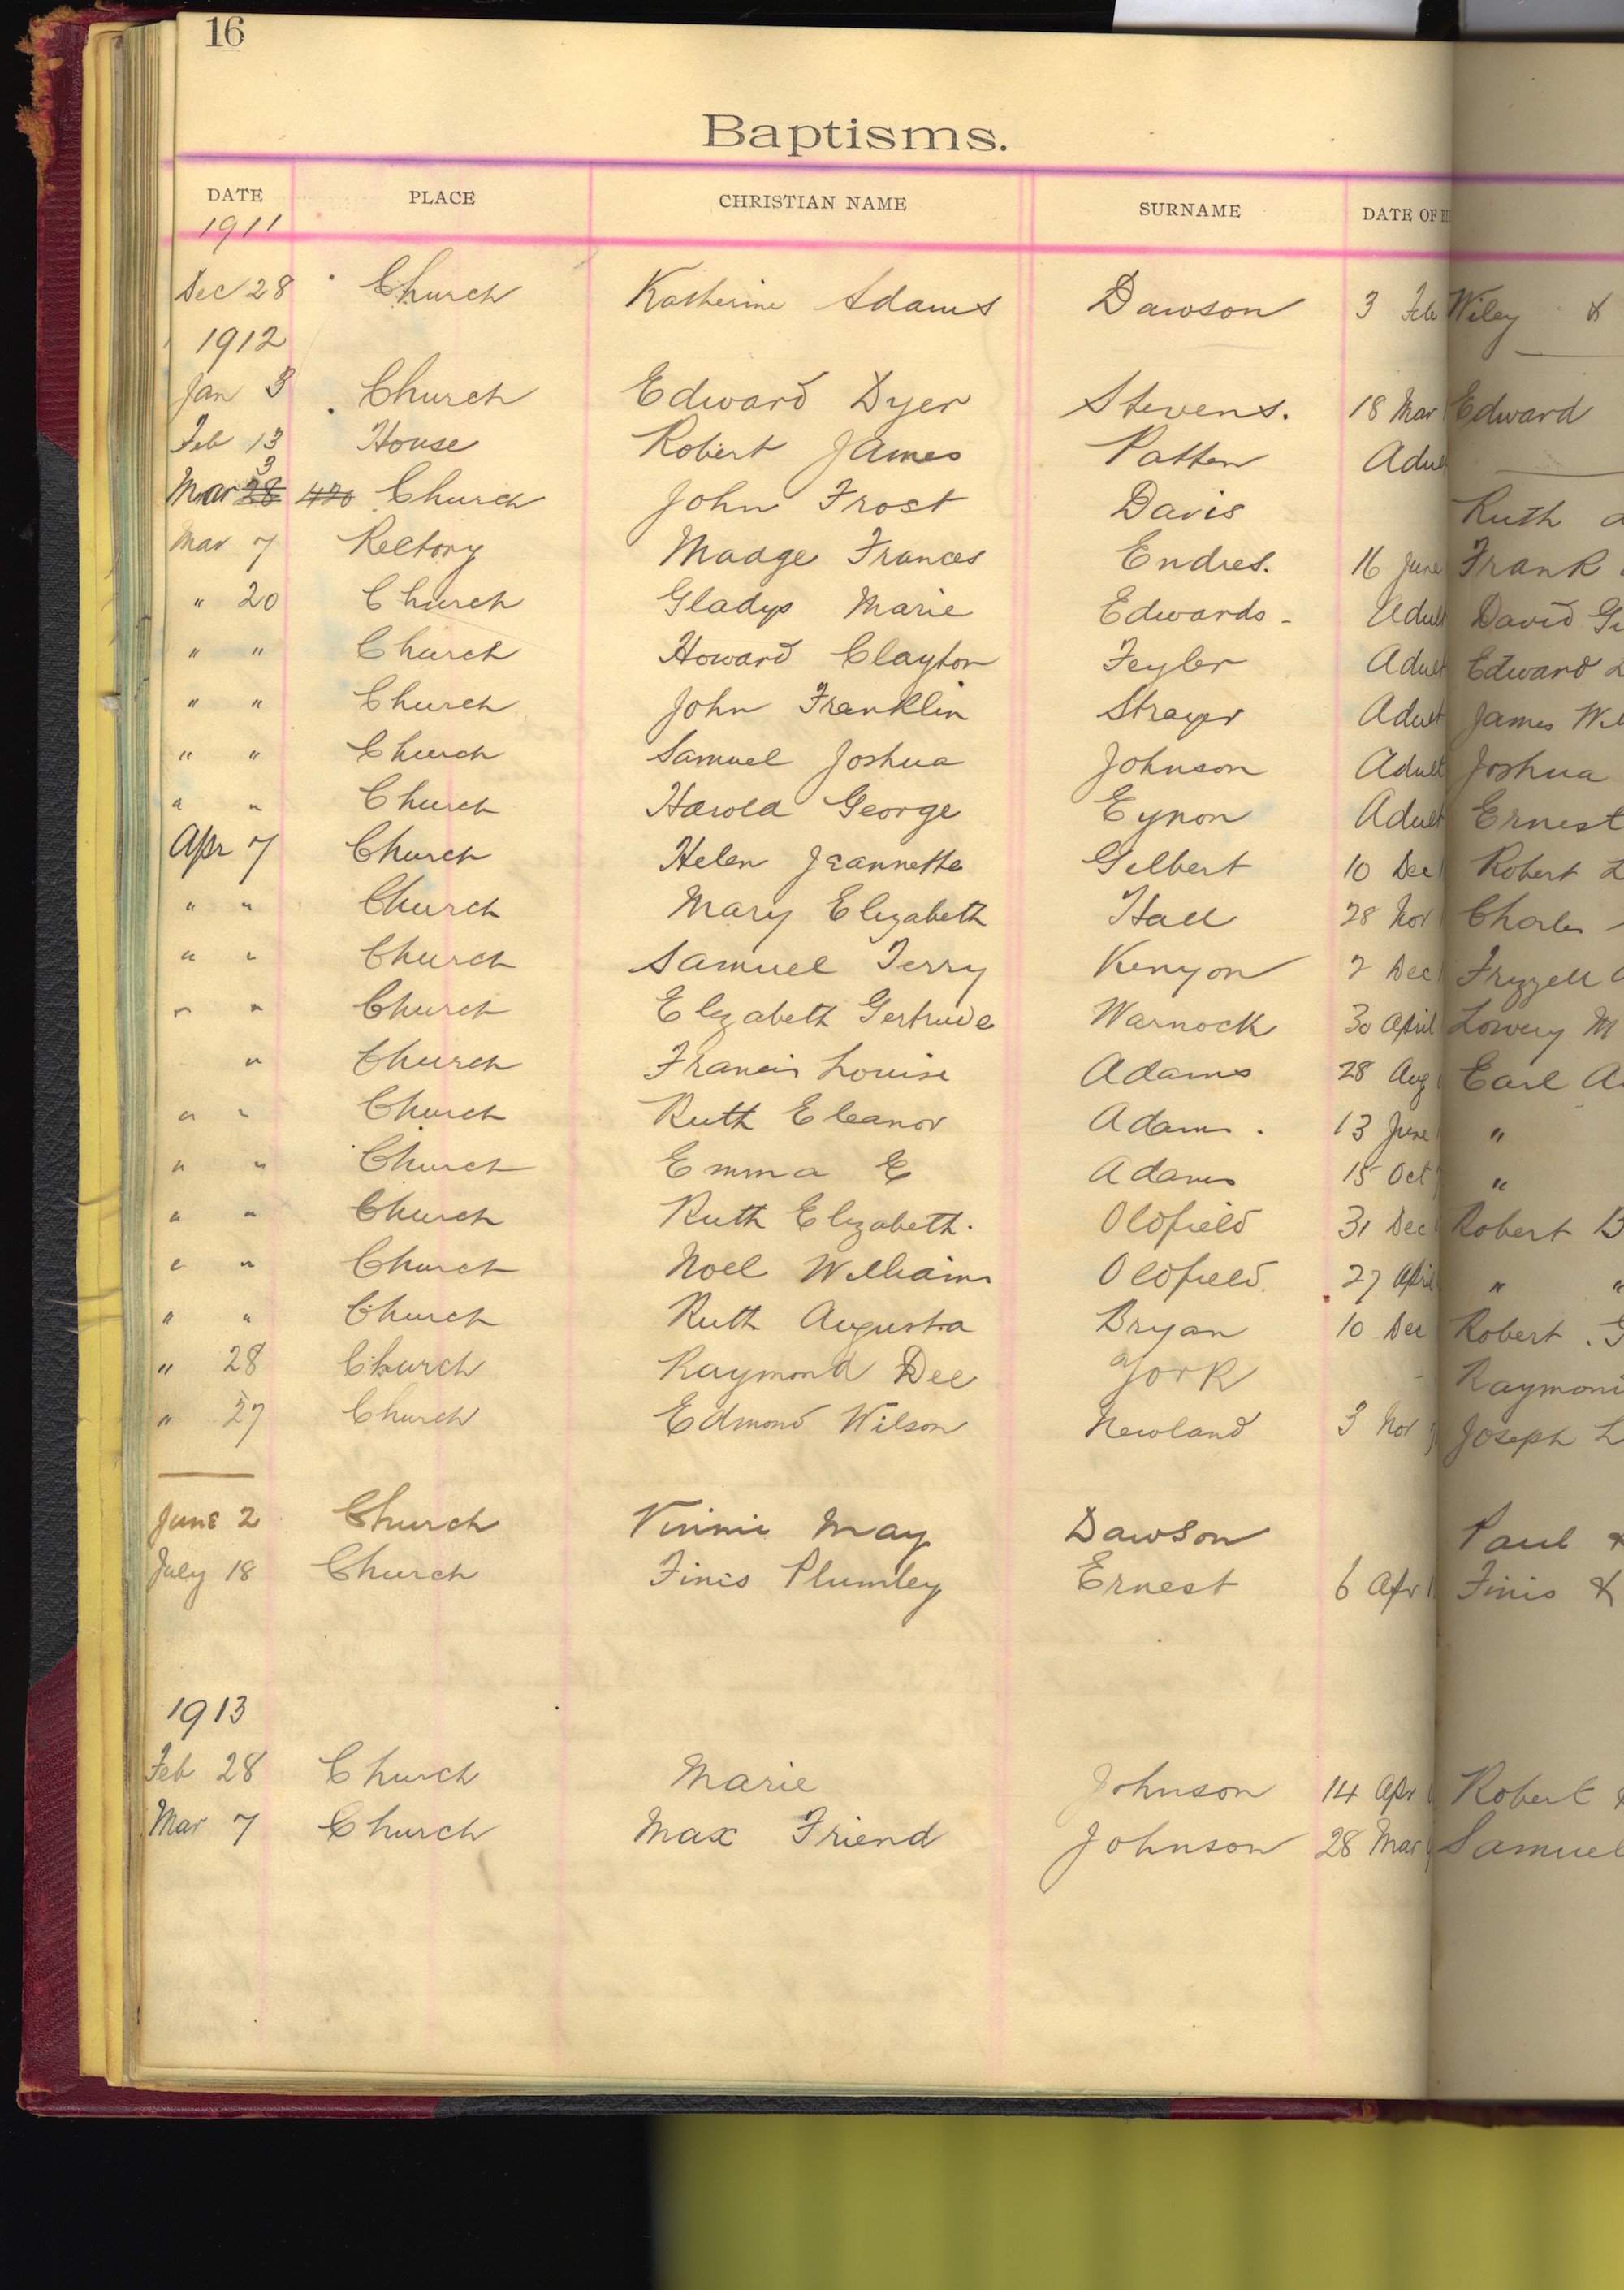 16
Baptisms.
DATE PLACE CHRISTIAN NAME SURNAME DATE OF
1911
Dec 28 Church Katherine Adams Dawson 3 Feb Wiley &
1912
Jan 3 Church Edward Dyer Stevens. 18 Mar Edward
Feb 13 House Robert James Patten Adult
3
Mar 28 420 Church John Frost Davis Ruth
Mar 7 Rectory Madge Frances Endres. 16 June Frank
" 20 Church Gladys Marie Edwards - Adult David
" " Church Howard Clayton Feyler Adult Edward
" " Church John Franklin Strayer Adult James
" " Church Samuel Joshua Johnson Adult Joshua
" " Church Harold George Eynon Adult Ernest
Apr 7 Church Helen Jeannette Gilbert 10 Dec Robert L
" " Church Mary Elizabeth Hall 28 Nov Charles
" " Church Samuel Terry Kenyon 2 Dec Frizzell
" " Church Elizabeth Gertrude Warnock 30 April Lowery M
" Church Francis Louise Adams 28 Aug Earl
" " Church Ruth Eleanor Adams. 13 June "
" " Church Emma E Adams 15 Oct "
" " Church Ruth Elizabeth. Oldfield 31 Dec Robert B
" " Church Noel William Oldfield. 27 April " "
" " Church Ruth Augusta Bryan 10 Dec Robert. G
" 28 Church Raymond Dee York Raymond
" 27 Church Edmond Wilson Newland 3 Nov Joseph L
June 2 Church Vinnie May Dawson Paul &
July 18 Church Finis Plumley Ernest 6 Apr Finis &
1913
Feb 28 Church Marie Johnson 14 Apr Robert
Mar 7 Church Max Friend Johnson 28 Mar Samuel